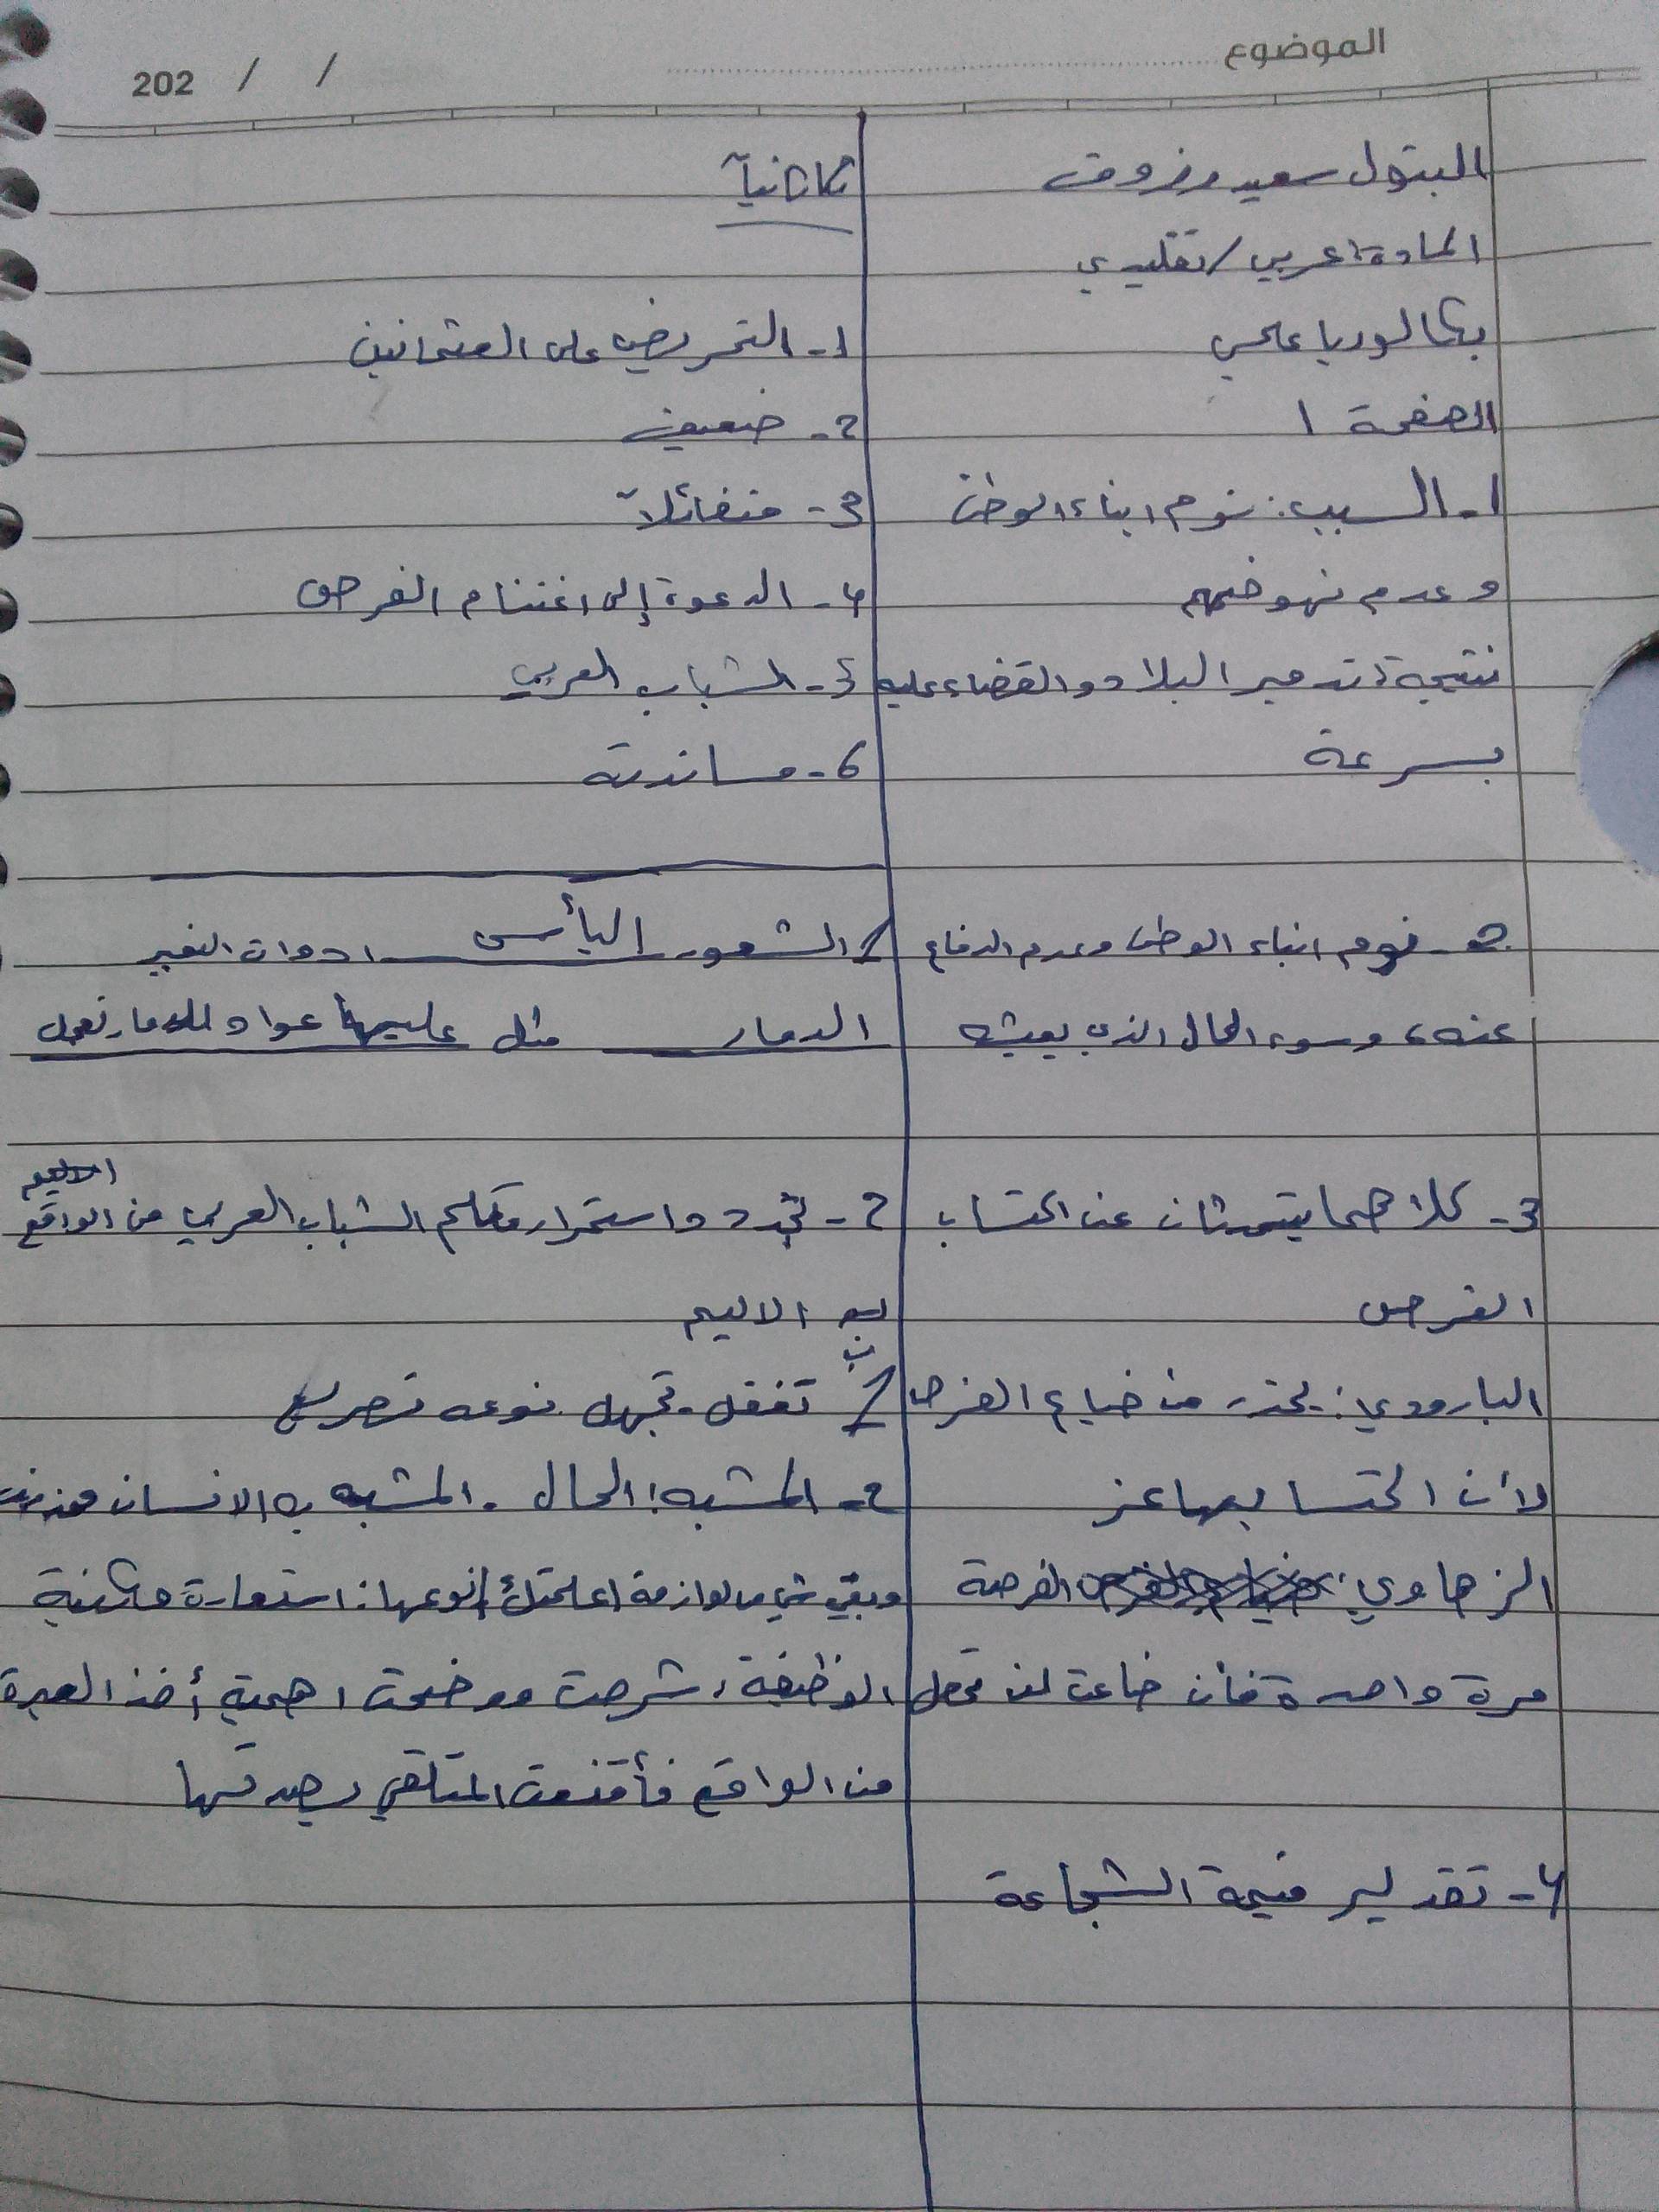 الموضوع
202 / /
البتول سعيد رزوق
المادة: عربي / تقليدي
بكالوريا علمي
الصفحة 1
1- السبب: نوم ابناء الوطن
وعدم نهوضهم
نتيجة: تدمير البلاد والقضاء عليه
بسرعة
2- نوم ابناء الوطن وعدم الدفاع
عنه، وسوء الحال الذي يعيشه
3- كلاهما يتحدثان عن اكتساب
الفرص
البارودي: يحذر من ضياع الفرص
لأن اكتسابها عز
الزهاوي: الفرصة
مرة واحدة فأن ضاعت لن تحصل
4- تقدير قيمة الشجاعة
ثانياً
1- التحريض على العثمانيين
2- ضعيف
3- متفائلاً
4- الدعوة إلى اغتنام الفرص
5- الشباب العربي
6- مساندته
1 الشعور اليأس ادوات التعبير
الدمار مثل عليها عواد للدمار تعجل
2- تجدد واستمرار الشباب العربي من الواقع
الاليم
الاليم
ب
1 تغفل - تجهل نوعه تصريع
2- المشبه: الحال . المشبه به الانسان
وبقي شي من لوازمة اعلمتك / نوعها: استعارة مكنية
الوظيفة: شرحت ووضحت اهمية أخذ العبرة
من الواقع فأقنعت المتلقي بصدقها